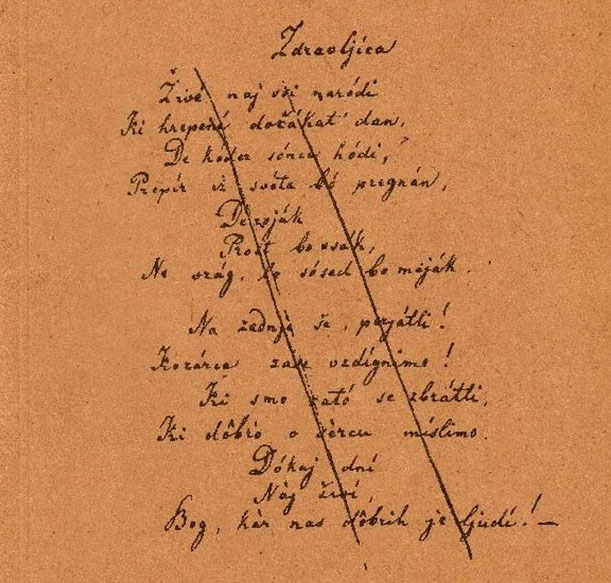 Zdravljica
Živé naj vsi naródi
Ki hrepené dočákat' dan,
De koder sónce hódi,
Prepir iz svéta bó pregnán,
De rojak
Prost bo vsák,
Ne vrág, le sósed bo meják.
Na zadnje še, perjátli!
Kozárce záse vzdignimo!
Ki smo zató se zbrátli,
Ki dôbro v sêrcu míslimo.
Dókaj dni
Nàj živí,
Bog, kàr nas dôbrih je ljudí! —